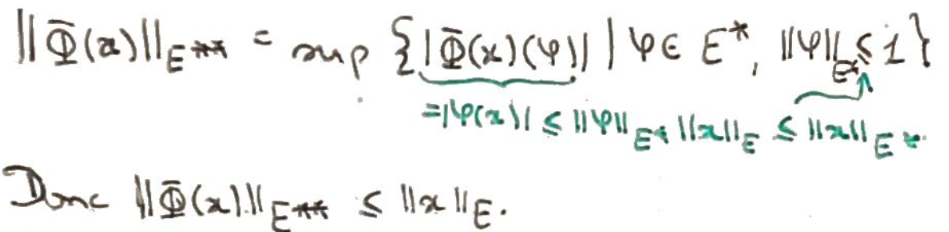 ||Φ(x)||_{E**} = sup {|Φ(x)(φ)| | φ ∈ E*, ||φ||_{E*} ≤ 1}
=|φ(x)| ≤ ||φ||_{E*} ||x||_E ≤ ||x||_E.
Donc ||Φ(x)||_{E**} ≤ ||x||_E.